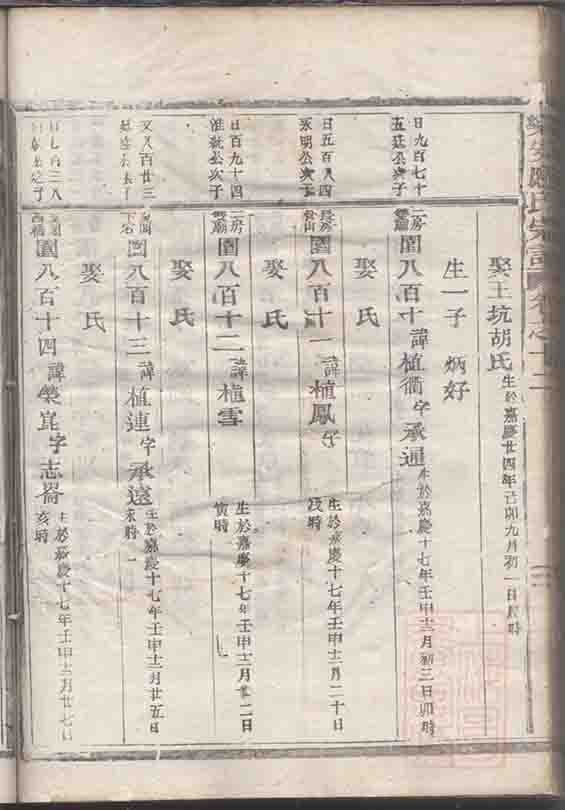 氏宗譜 卷之十二
娶王坑胡氏 生於嘉慶廿四年己卯九月初一日辰時
生一子 炳好
日九百七十
五廷公次子
二房 圍八百十 諱植衢字承通 生於嘉慶十七年壬申十二月初三日卯時
娶氏
日五百八四
永明公次子
圍八百十一 諱植鳳 字 生於嘉慶十七年壬申十二月二十日
戌時
娶氏
日百九十四
公次子
二房 圍八百十二 諱植雪 生於嘉慶十七年壬申十二月廿二日
寅時
娶氏
又八百廿三
圍八百十三 諱植連字承遠 生於嘉慶十七年壬申十二月廿五日
未時
娶氏
之子
圍八百十四 諱榮崑字志崙 生於嘉慶十七年壬申十二月廿七日
亥時